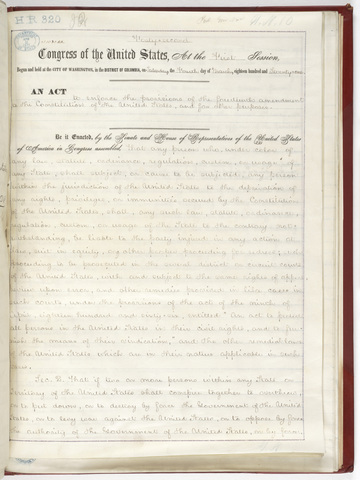 H.R. 320
Forty-second
Congress of the United States, At the First Session,
Begun and held at the CITY OF WASHINGTON, in the DISTRICT OF COLUMBIA, on Saturday, the Fourth day of March, eighteen hundred and seventy-one.
AN ACT
To enforce the provisions of the fourteenth amendment
to the Constitution of the United States, and for other purposes.
Be it Enacted, by the Senate and House of Representatives of the United States
of America in Congress assembled, That any person who, under color of
any law, statute, ordinance, regulation, custom, or usage of
any State, shall subject, or cause to be subjected, any person
within the jurisdiction of the United States to the deprivation of
any rights, privileges, or immunities secured by the Constitution
of the United States, shall, any such law, statute, ordinance,
regulation, custom, or usage of the State to the contrary not-
withstanding, be liable to the party injured in any action at
law, suit in equity, or other proper proceeding for redress; such
proceeding to be prosecuted in the several district or circuit courts
of the United States, with and subject to the same rights of app-
eal, upon error, and other remedies provided in like cases in
such courts, under the provisions of the act of the ninth of
April, eighteen hundred and sixty-six, entitled "An act to protect
all persons in the United States in their civil rights, and to fur-
nish the means of their vindication;" and the other remedial laws
of the United States which are in their nature applicable in such
cases.
Sec. 2. That if two or more persons within any State or
Territory of the United States shall conspire together to overthrow,
or to put down, or to destroy by force the Government of the United
States, or to levy war against the United States, or to oppose by force
the authority of the Government of the United States, or by force,